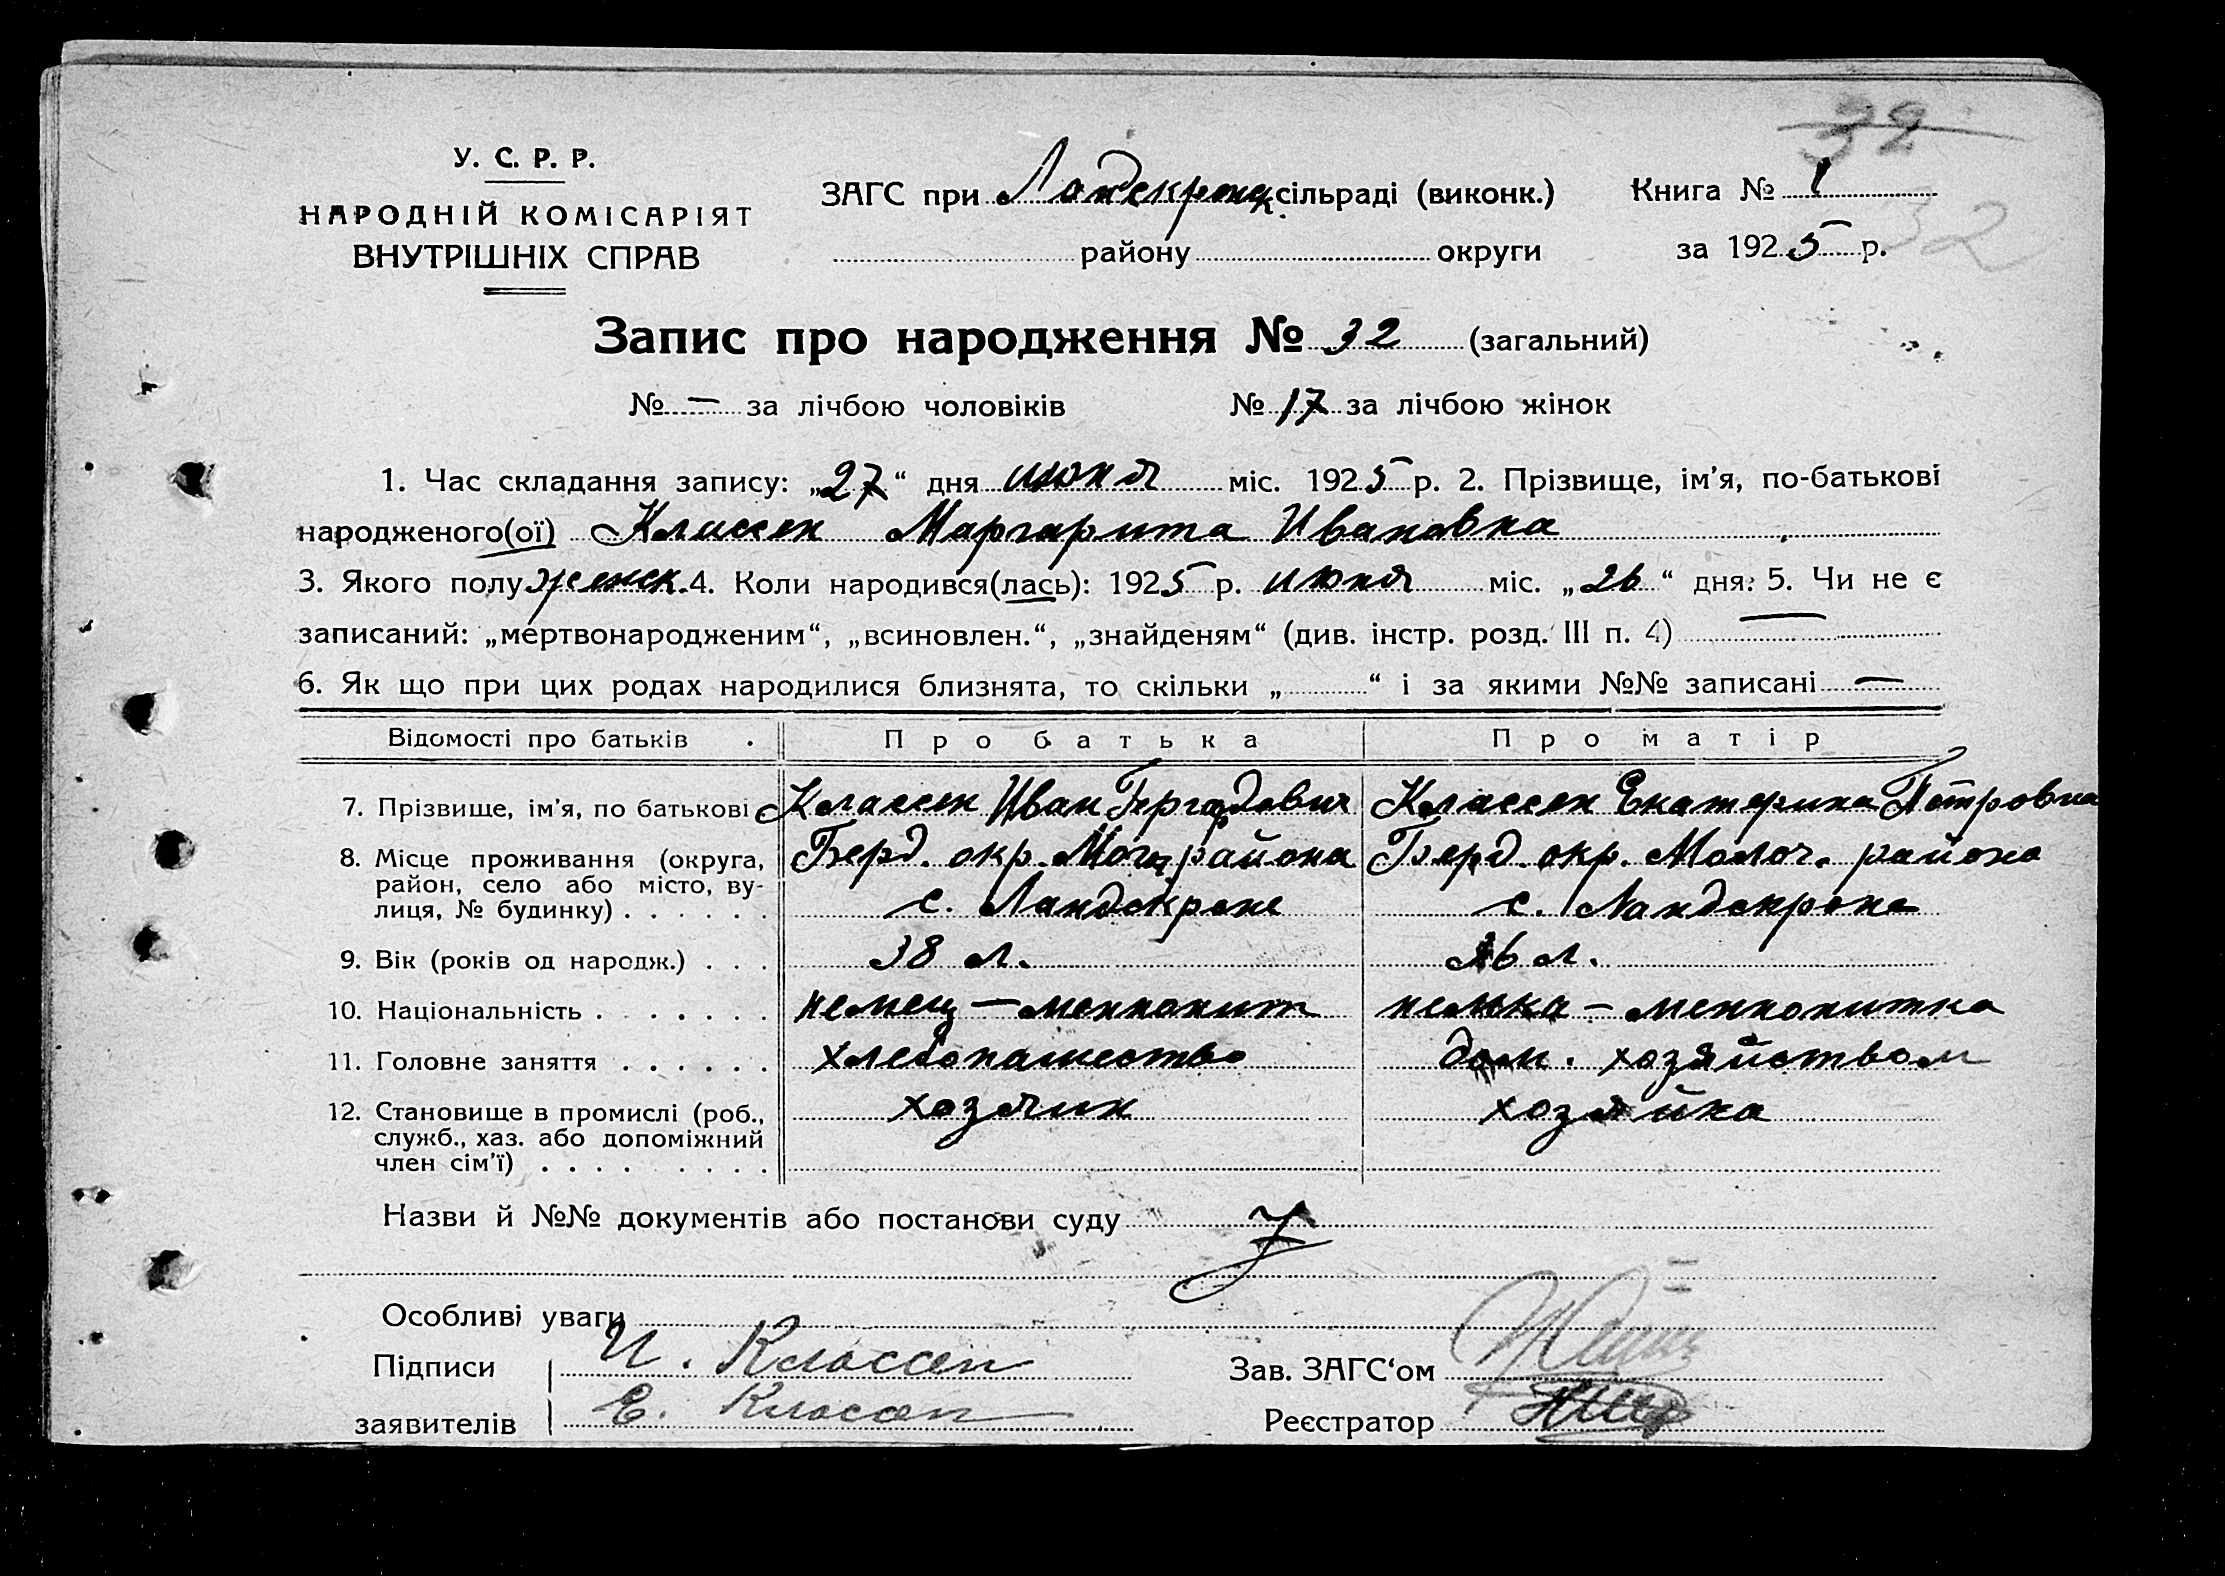 32
У. С. Р. Р.
НАРОДНІЙ КОМІСАРІЯТ
ВНУТРІШНІХ СПРАВ
ЗАГС при Ландскронск. сільраді (виконк.)
району округи
Книга № 1
за 1925 р.
32
Запис про народження № 32 (загальний)
№ — за лічбою чоловіків № 17 за лічбою жінок
1. Час складання запису: „27“ дня июня міс. 1925 р. 2. Прізвище, ім’я, по-батькові
народженого(ої) Классен Маргарита Ивановна
3. Якого полу женск. 4. Коли народився(лась): 1925 р. июня міс. „26“ дня. 5. Чи не є
записаний: „мертвонародженим“, „всиновлен.“, „знайденям“ (див. інстр. розд. III п. 4) —
6. Як що при цих родах народилися близнята, то скільки „ “ і за якими №№ записані —
Відомості про батьків Про батька Про матір
7. Прізвище, ім’я, по батькові Классен Иван Гергардович Классен Екатерина Петровна
8. Місце проживання (округа, Берд. окр. района Берд. окр. Молоч. района
район, село або місто, ву-
лиця, № будинку) . . . . . . с. Ландскроне с. Ландскроне
9. Вік (років од народж.) . . . 38 л. л.
10. Національність . . . . . . . немец — меннонит немка — меннонитка
11. Головне заняття . . . . . . хлебопашество дом. хозяйством
12. Становище в промислі (роб., хозяин хозяйка
служб., хаз. або допоміжний
член сім’ї) . . . . . . . .
Назви й №№ документів або постанови суду
Особливі уваги
Підписи И. Классен Зав. ЗАГС‘ом
заявителів Е. Классен Реєстратор